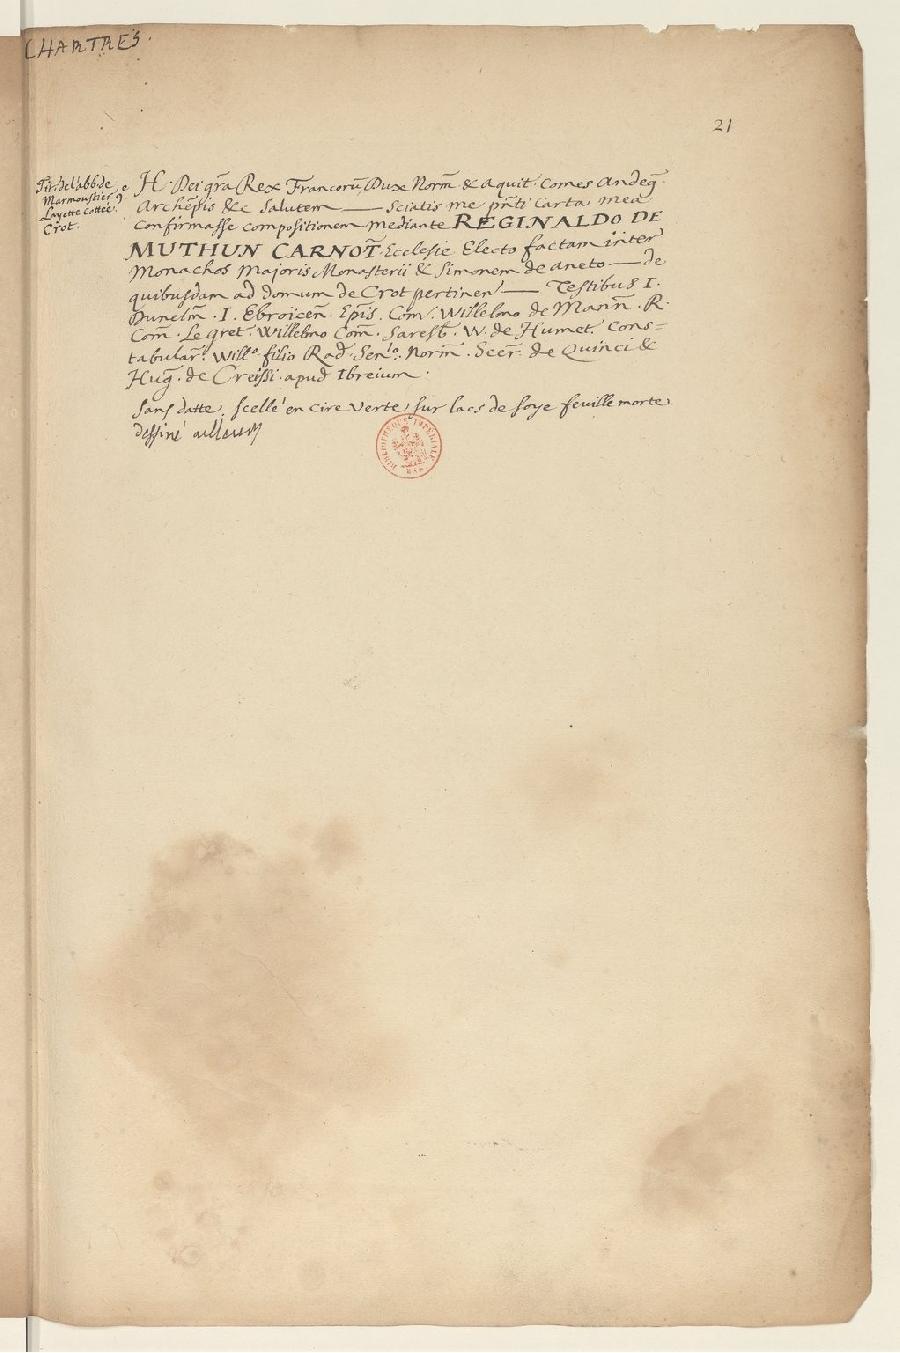 CHARTRES.
21
Tir. de l'abb. de
Marmoustier
Layette cottée
Crot.
H. Dei gr̃a Rex Francorũ, Dux Norm̃ & aquit. Comes andeg̃.
Archẽpis &c Salutem — Sciatis me pñti Carta mea
confirmasse compositionem mediante REGINALDO DE
MUTHUN CARNOT̃. Ecclesie Electo factam inter
Monachos Majoris Monasterii & Simonem de aneto — de
quibusdam ad domum de Crot pertinen̄ — Testibus I.
Dunelm̃. I. Ebroiceñ Ep̃is. Com. Willelmo de Mann̄. R.
Com̃. Legret Willelmo Com̃. Saresb̃. W. de Humet. Cons=
tabular. Will.o filio Rad. Sen.lo. Norm̃. Seer. de Quinci &
Hug̃. de Creissi. apud Ibreium.
Sans datte. scellé en cire verte, sur lacs de soye feuille morte
dessiné ailleurs
BIBLIOTHEQUE IMPERIALE